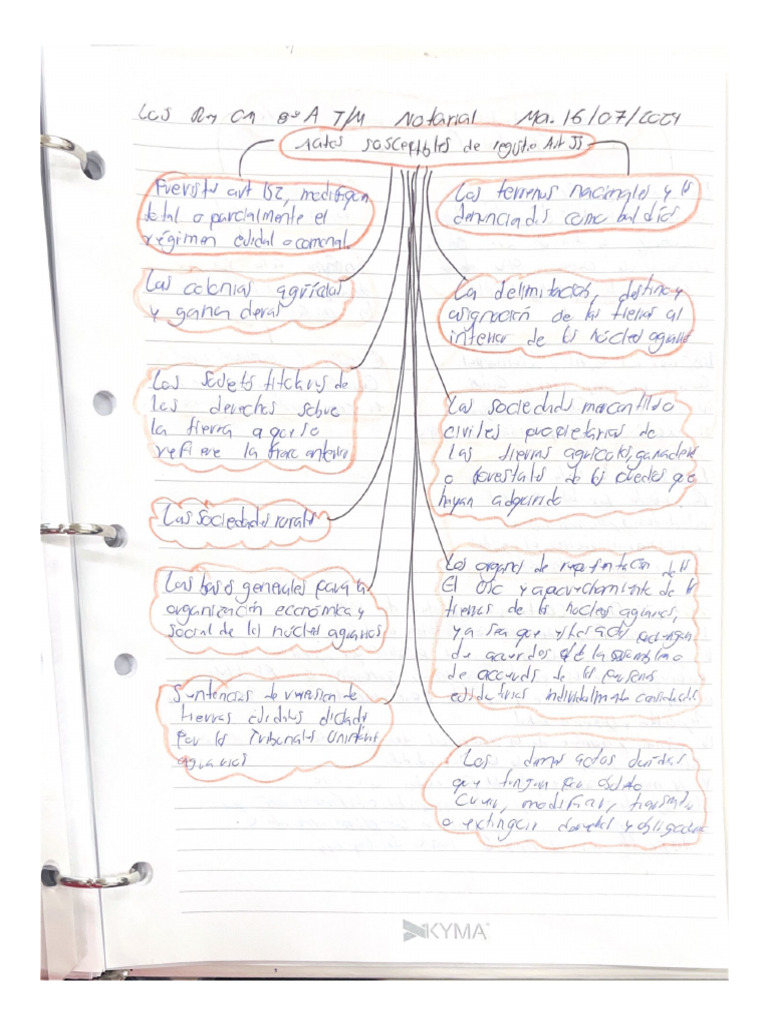 Notarial Ma. 16/07/2024
Actos susceptibles de registro Art 55
Previstos art 152, modifiquen
total o parcialmente el
régimen ejidal o comunal
Las colonias agrícolas
y ganaderas
Los sujetos titulares de
los derechos sobre
la tierra a que se
refiere la frac anterior
Las sociedades rurales
Las bases generales para la
organización económica y
social de los núcleos agrarios
Sentencias de reversión de
tierras ejidales dictada
por los Tribunales Unitarios
agrarios
Los terrenos nacionales y los
denunciados como baldíos
La delimitación, destino y
asignación de las tierras al
interior de los núcleos agrarios
Las sociedades mercantiles o
civiles propietarias de
las tierras agrícolas, ganaderas
o forestales de los que
hayan adquirido
Los órganos de representación de los
El uso y aprovechamiento de las
tierras de los núcleos agrarios,
ya sea que estos actos
de acuerdos de la asamblea o
de acuerdos de las personas
individualmente consideradas
Los demás actos jurídicos
que tengan por objeto
crear, modificar, transmitir
o extinguir derechos y obligaciones
KYMA